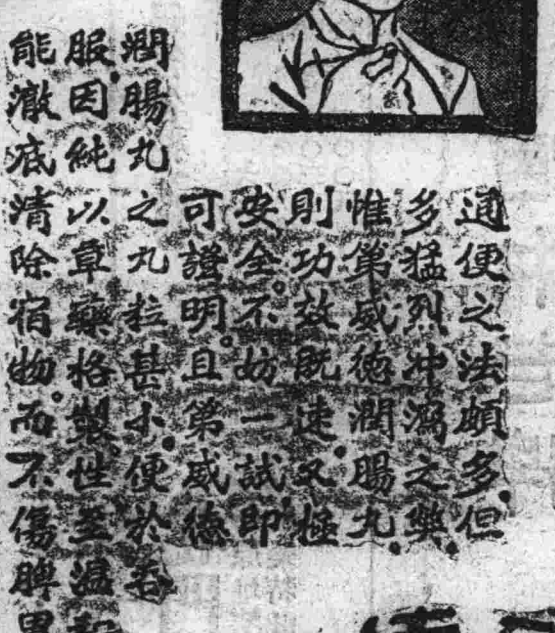 通便之法頗多、但
多猛烈冲瀉之藥、
惟第威德潤腸丸、
則功效既速、又極
安全。不妨一試、即
可證明。且第威德
潤腸丸之丸粒甚小、便於吞
服、因純以草藥格製、性至温和
能澈底清除宿物。而不傷脾胃